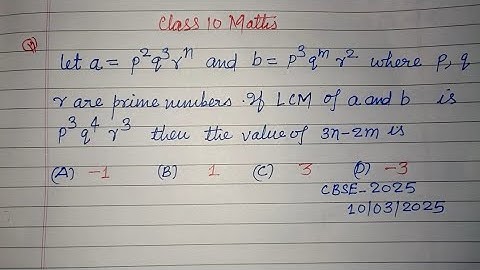 Class 10 Maths
Q) let a = p²q³rⁿ and b = p³qᵐr² where p, q
r are prime numbers. If LCM of a and b is
p³q⁴r³ then the value of 3n-2m is
(A) -1 (B) 1 (C) 3 (D) -3
CBSE-2025
10/03/2025